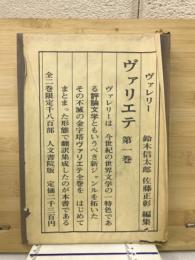 ヴァレリー
ヴァリエテ 第一巻
鈴木信太郎 佐藤正彰 編集
ヴァレリーは 今世紀の世界文学の一特色であ
る評論文学ともいうべき新ジャンルを拓いた
その不滅の金字塔ヴァリエテ全巻を はじめて
まとまった形態で翻訳集成したのが本書である
全二巻限定千八百部 人文書院版 定価二千三百円